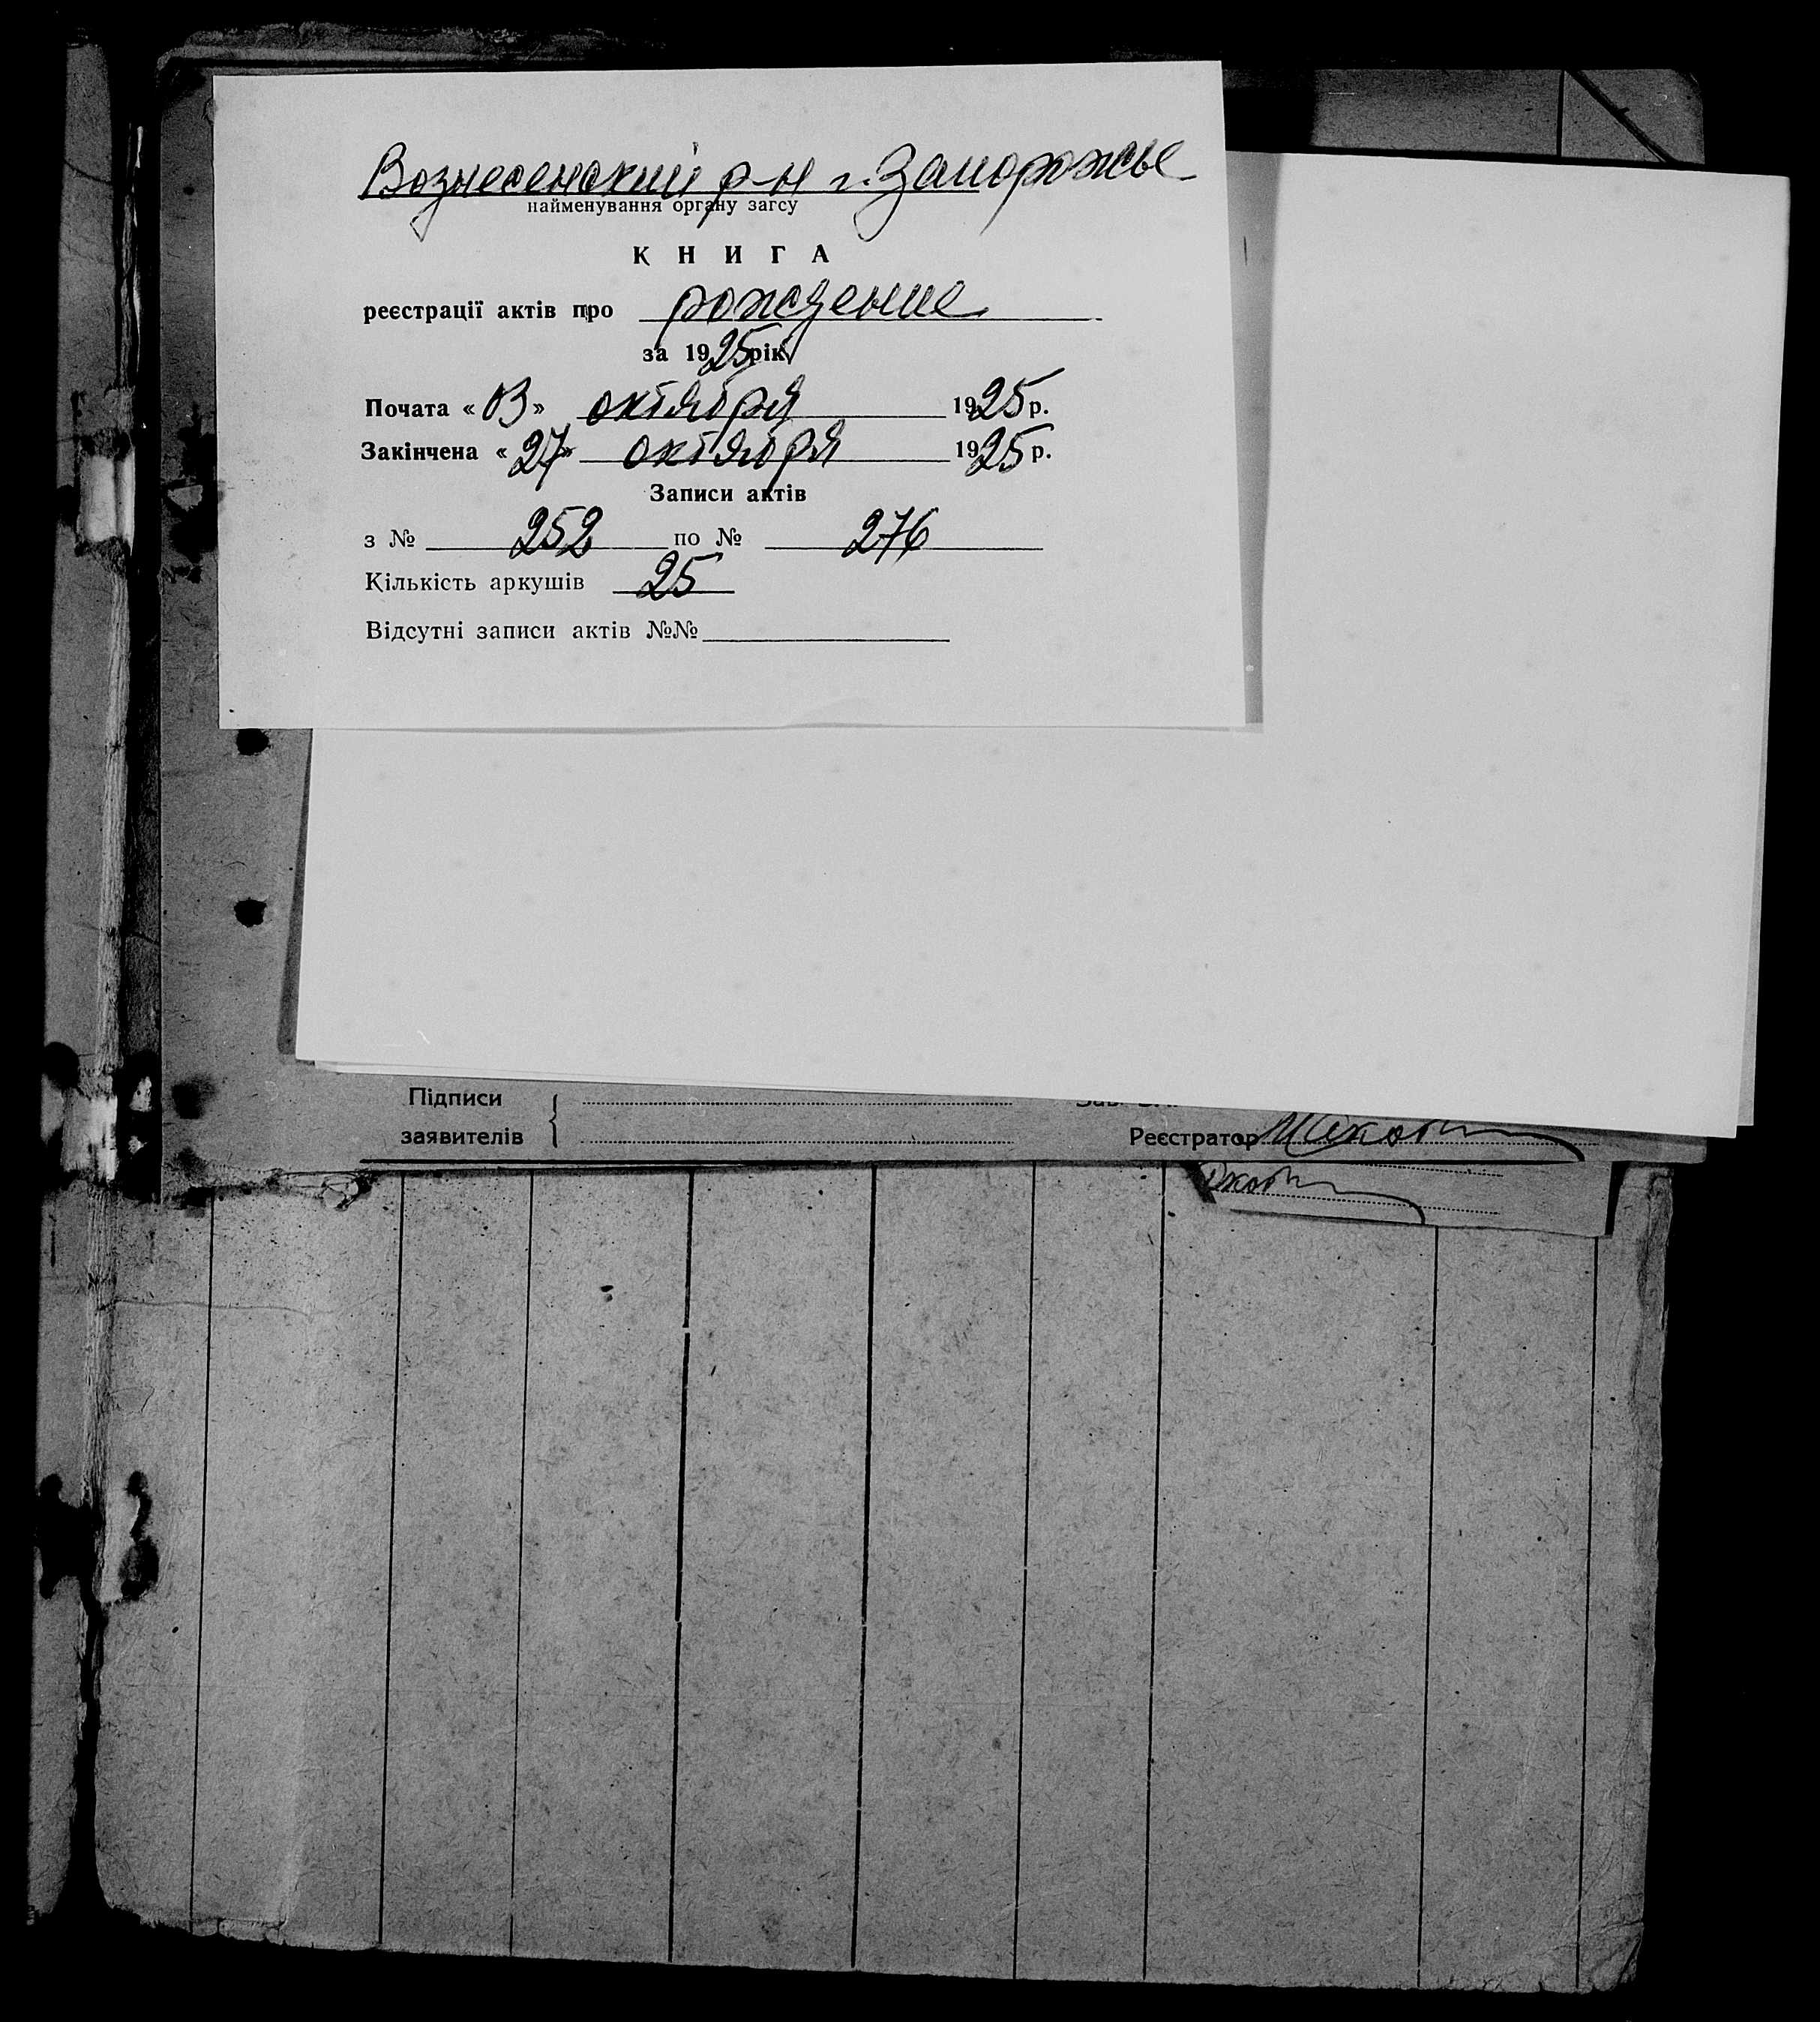 Вознесенский р-н г. Запорожье
найменування органу загсу
КНИГА
реєстрації актів про рождение
за 1925 рік
Почата «03» октября 1925 р.
Закінчена «27» октября 1925 р.
Записи актів
з № 252 по № 276
Кількість аркушів 25
Відсутні записи актів №№
Підписи
заявителів
Реєстратор